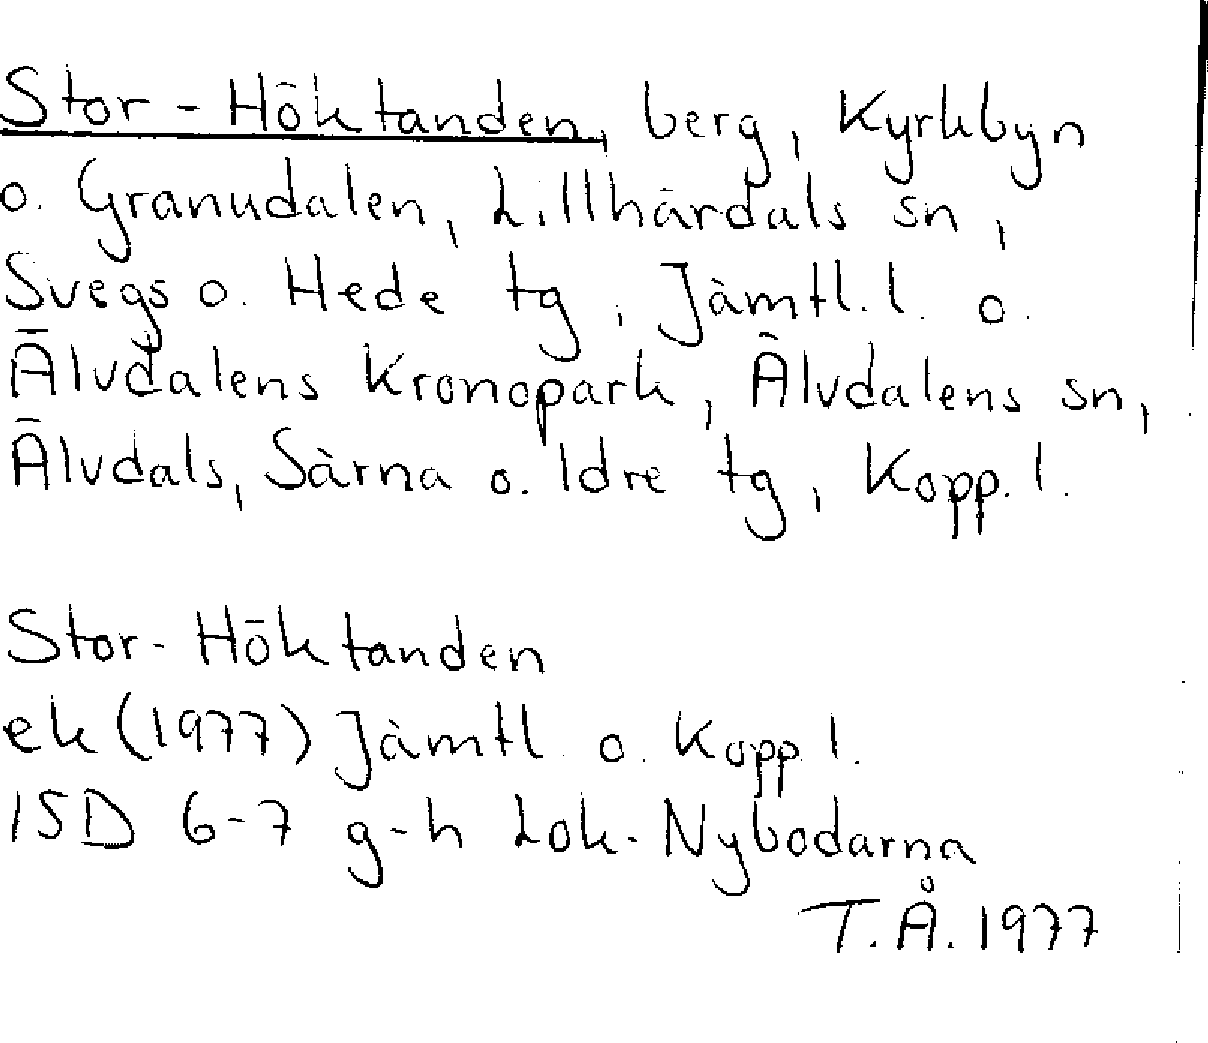 Stor-Höktanden, berg, Kyrkbyn
o. Granudalen, Lillhärdals sn,
Svegs o. Hede tg, Jämtl.l. o.
Älvdalens Kronopark, Älvdalens sn,
Älvdals, Särna o. Idre tg, Kopp.l.
Stor-Höktanden
ek (1977) Jämtl o. Kopp l.
15D 6-7 g-h Lok-Nybodarna
T.Å. 1977